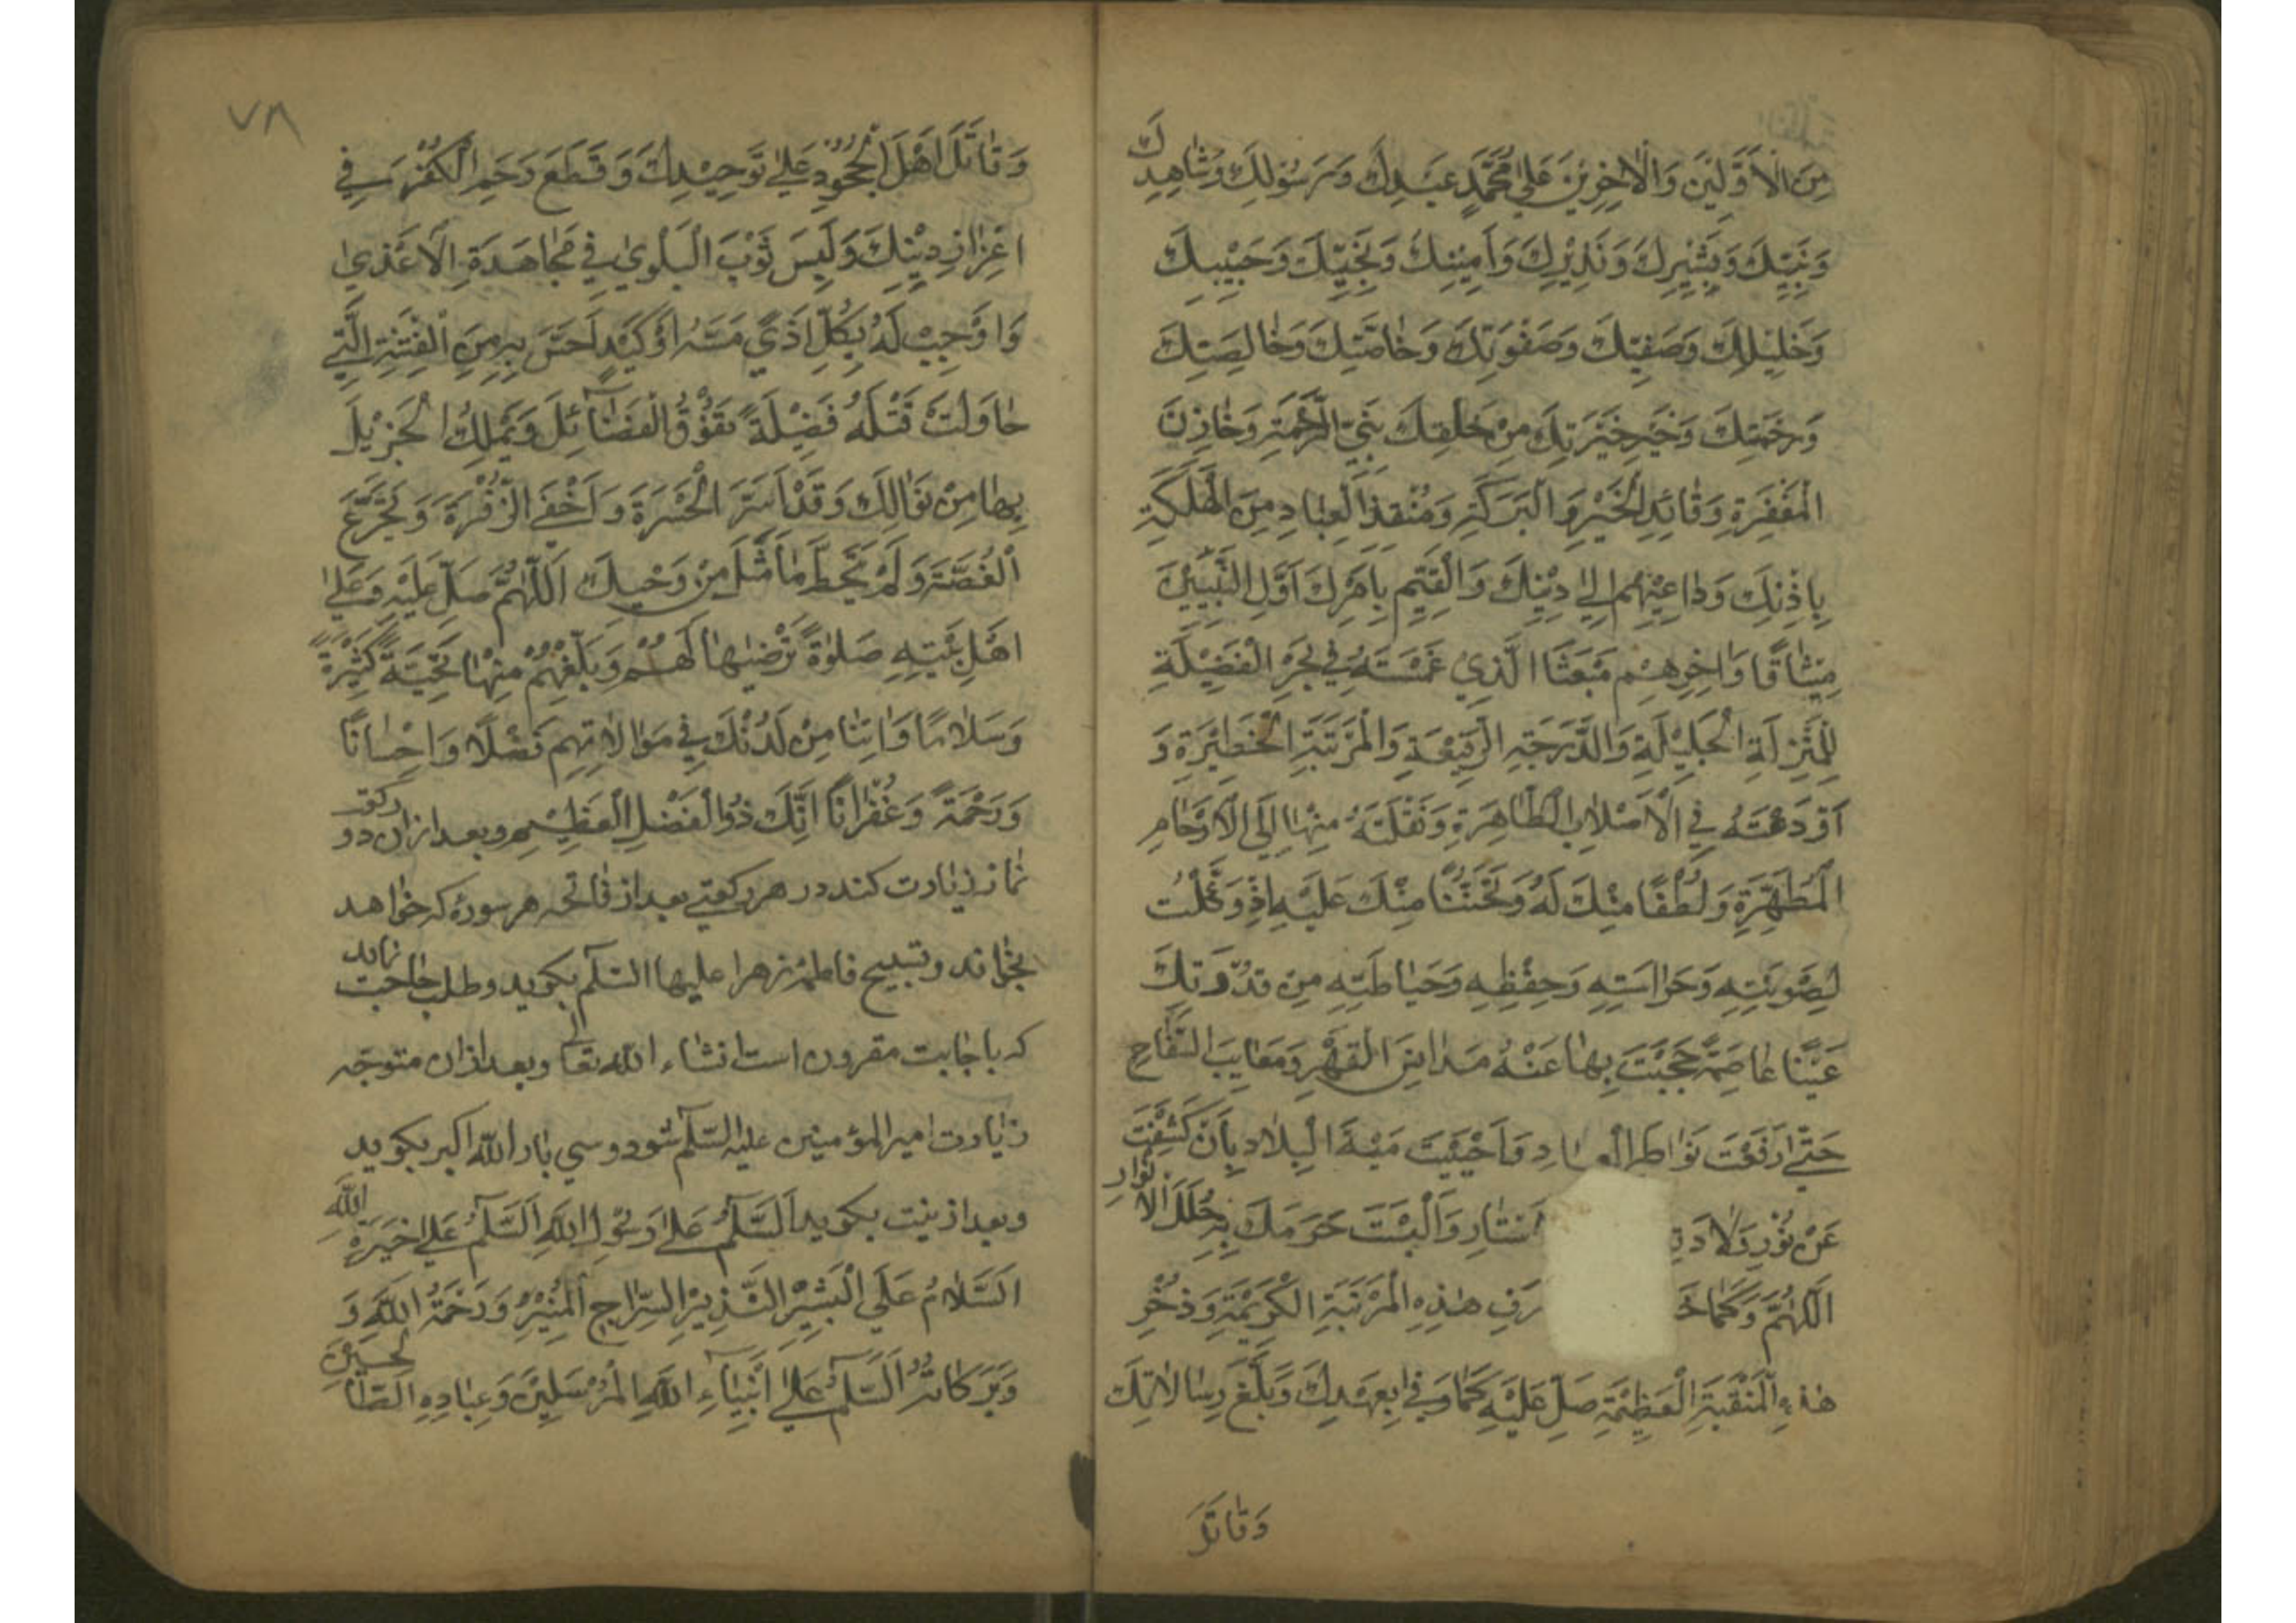 مِنَ الْاَوَّلِينَ وَالْاٰخِرِينَ عَلٰى مُحَمَّدٍ عَبْدِكَ وَرَسُولِكَ وَشَاهِدِكَ
وَنَبِيِّكَ وَبَشِيرِكَ وَنَذِيرِكَ وَاَمِينِكَ وَنَجِيِّكَ وَحَبِيبِكَ
وَخَلِيلِكَ وَصَفِيِّكَ وَصَفْوَتِكَ وَخَاصَّتِكَ وَخَالِصَتِكَ
وَرَحْمَتِكَ وَخَيْرِ خِيَرَتِكَ مِنْ خَلْقِكَ نَبِيِّ الرَّحْمَةِ وَخَازِنَ
الْمَغْفِرَةِ وَقَائِدِ الْخَيْرِ وَالْبَرَكَةِ وَمُنْقِذِ الْعِبَادِ مِنَ الْهَلَكَةِ
بِاِذْنِكَ وَدَاعِيهِمْ اِلٰى دِينِكَ وَالْقَيِّمِ بِاَمْرِكَ اَوَّلِ النَّبِيِّينَ
مِيثَاقًا وَاٰخِرِهِمْ مَبْعَثًا الَّذِي غَمَسْتَهُ فِي بَحْرِ الْفَضِيلَةِ
لِلْمَنْزِلَةِ الْجَلِيلَةِ وَالدَّرَجَةِ الرَّفِيعَةِ وَالْمَرْتَبَةِ الْخَطِيرَةِ وَ
اَوْدَعْتَهُ فِي الْاَصْلَابِ الطَّاهِرَةِ وَنَقَلْتَهُ مِنْهَا اِلَى الْاَرْحَامِ
الْمُطَهَّرَةِ وَلُطْفًا مِنْكَ لَهُ وَتَحَنُّنًا مِنْكَ عَلَيْهِ اِذْ وَكَّلْتَ
لِصَوْنِهِ وَحَرَاسَتِهِ وَحِفْظِهِ وَحَيَاطَتِهِ مِنْ قُدْرَتِكَ
عَيْنًا عَاصِمَةً حَجَبْتَ بِهَا عَنْهُ مَدَانِسَ الْعَهْرِ وَمَعَايِبَ السِّفَاحِ
حَتّٰى رَفَعْتَ نَوَاظِرَ الْعِبَادِ وَاَحْيَيْتَ مَيْتَ الْبِلَادِ بِاَنْ كَشَفْتَ
عَنْ نُورِ وِلَادَتِ اَسْتَارِ وَاَلْبَسْتَ حَرَمَكَ بِهِ حُلَلَ الْاَنْوَارِ
اَللّٰهُمَّ وَكَمَا خَ رَفِ هٰذِهِ الْمَرْتَبَةِ الْكَرِيمَةِ وَذُخْرِ
هٰذِهِ الْمَنْقَبَةِ الْعَظِيمَةِ صَلِّ عَلَيْهِ كَمَا وَفٰى بِعَهْدِكَ وَبَلَّغَ رِسَالَاتِكَ
وَقَاتَلَ
٧٨
وَقَاتَلَ اَهْلَ الْجُحُودِ عَلٰى تَوْحِيدِكَ وَقَطَعَ رَحِمَ الْكُفْرِ فِي
اِعْزَازِ دِينِكَ وَلَبِسَ ثَوْبَ الْبَلْوٰى فِي مُجَاهَدَةِ الْاَعْدٰى
وَاَوْجِبْ لَهُ بِكُلِّ اَذًى مَسَّهُ اَوْ كَيْدٍ اَحَسَّ بِهِ مِنَ الْفِتَنَةِ الَّتِي
حَاوَلَتْ قَتْلَهُ فَضِيلَةً تَفُوقُ الْفَضَائِلَ وَيَمْلِكُ الْجَزِيلَ
بِهَا مِنْ نَوَالِكَ وَقَدْ اَسَرَّ الْحَسْرَةَ وَاَخْفَى الزَّفْرَةَ وَتَجَرَّعَ
الْغُصَّةَ وَلَمْ يَتَخَطَّ مَا مَثَّلَ مِنْ وَحْيِكَ اَللّٰهُمَّ صَلِّ عَلَيْهِ وَعَلٰى
اَهْلِ بَيْتِهِ صَلٰوةً تَرْضٰيهَا لَهُمْ وَبَلِّغْهُمْ مِنْهَا تَحِيَّةً كَثِيرَةً
وَسَلَامًا وَاٰتِنَا مِنْ لَدُنْكَ فِي مُوَالَاتِهِمْ فَضْلًا وَاِحْسَانًا
وَرَحْمَةً وَغُفْرَانًا اِنَّكَ ذُو الْفَضْلِ الْعَظِيمِ وبعد ازان دو ركعت
نماز زيارت كند در هر ركعتى بعد از فاتحه هر سوره كه خواهد
بخواند و تسبيح فاطمه زهرا عليها السلم بكويد و طلب حاجت نمايد
كه باجابت مقرون است انشاء الله تعالى و بعد ازان متوجه
زيارت امير المؤمنين عليه السلم شود و سى بار الله اكبر بكويد
و بعد از نيت بكويد اَلسَّلٰمُ عَلٰى رَسُولِ اللهِ اَلسَّلٰمُ عَلٰى خِيَرَةِ اللهِ
اَلسَّلَامُ عَلَى الْبَشِيرِ النَّذِيرِ السِّرَاجِ الْمُنِيرِ وَرَحْمَةُ اللهِ وَ
وَبَرَكَاتُهُ اَلسَّلٰمُ عَلٰى اَنْبِيَاءِ اللهِ الْمُرْسَلِينَ وَعِبَادِهِ الصَّالِحِينَ